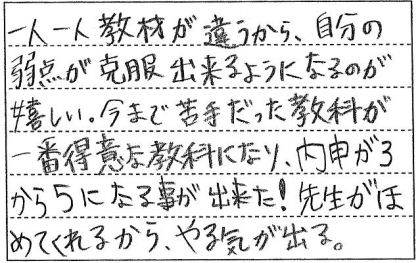 一人一人教材が違うから、自分の
弱点が克服出来るようになるのが
嬉しい。今まで苦手だった教科が
一番得意な教科になり、内申が3
から5になる事が出来た！先生がほ
めてくれるから、やる気が出る。